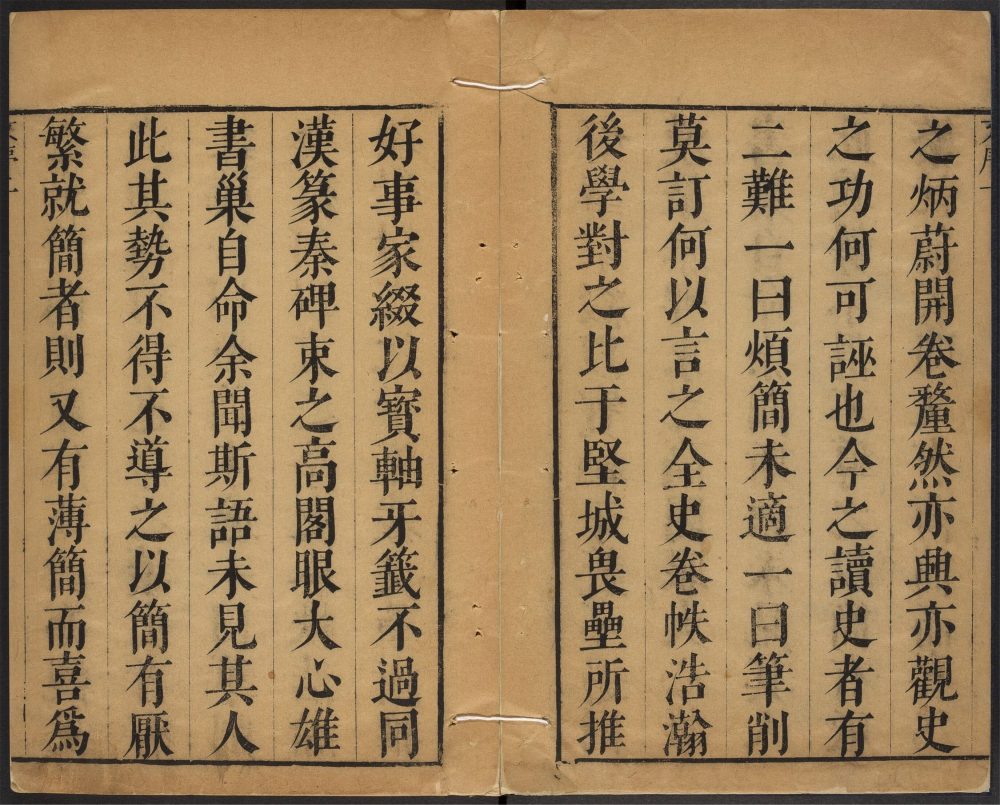 之炳蔚開卷犛然亦興亦觀史
之功何可誣也今之讀史者有
二難一曰煩簡未適一曰筆削
莫訂何以言之全史卷帙浩瀚
後學對之比于堅城畏壘所推
好事家綴以寶軸牙籤不過同
漢篆秦碑束之高閣眼大心雄
書巢自命余聞斯語未見其人
此其勢不得不導之以簡有厭
繁就簡者則又有薄簡而喜爲